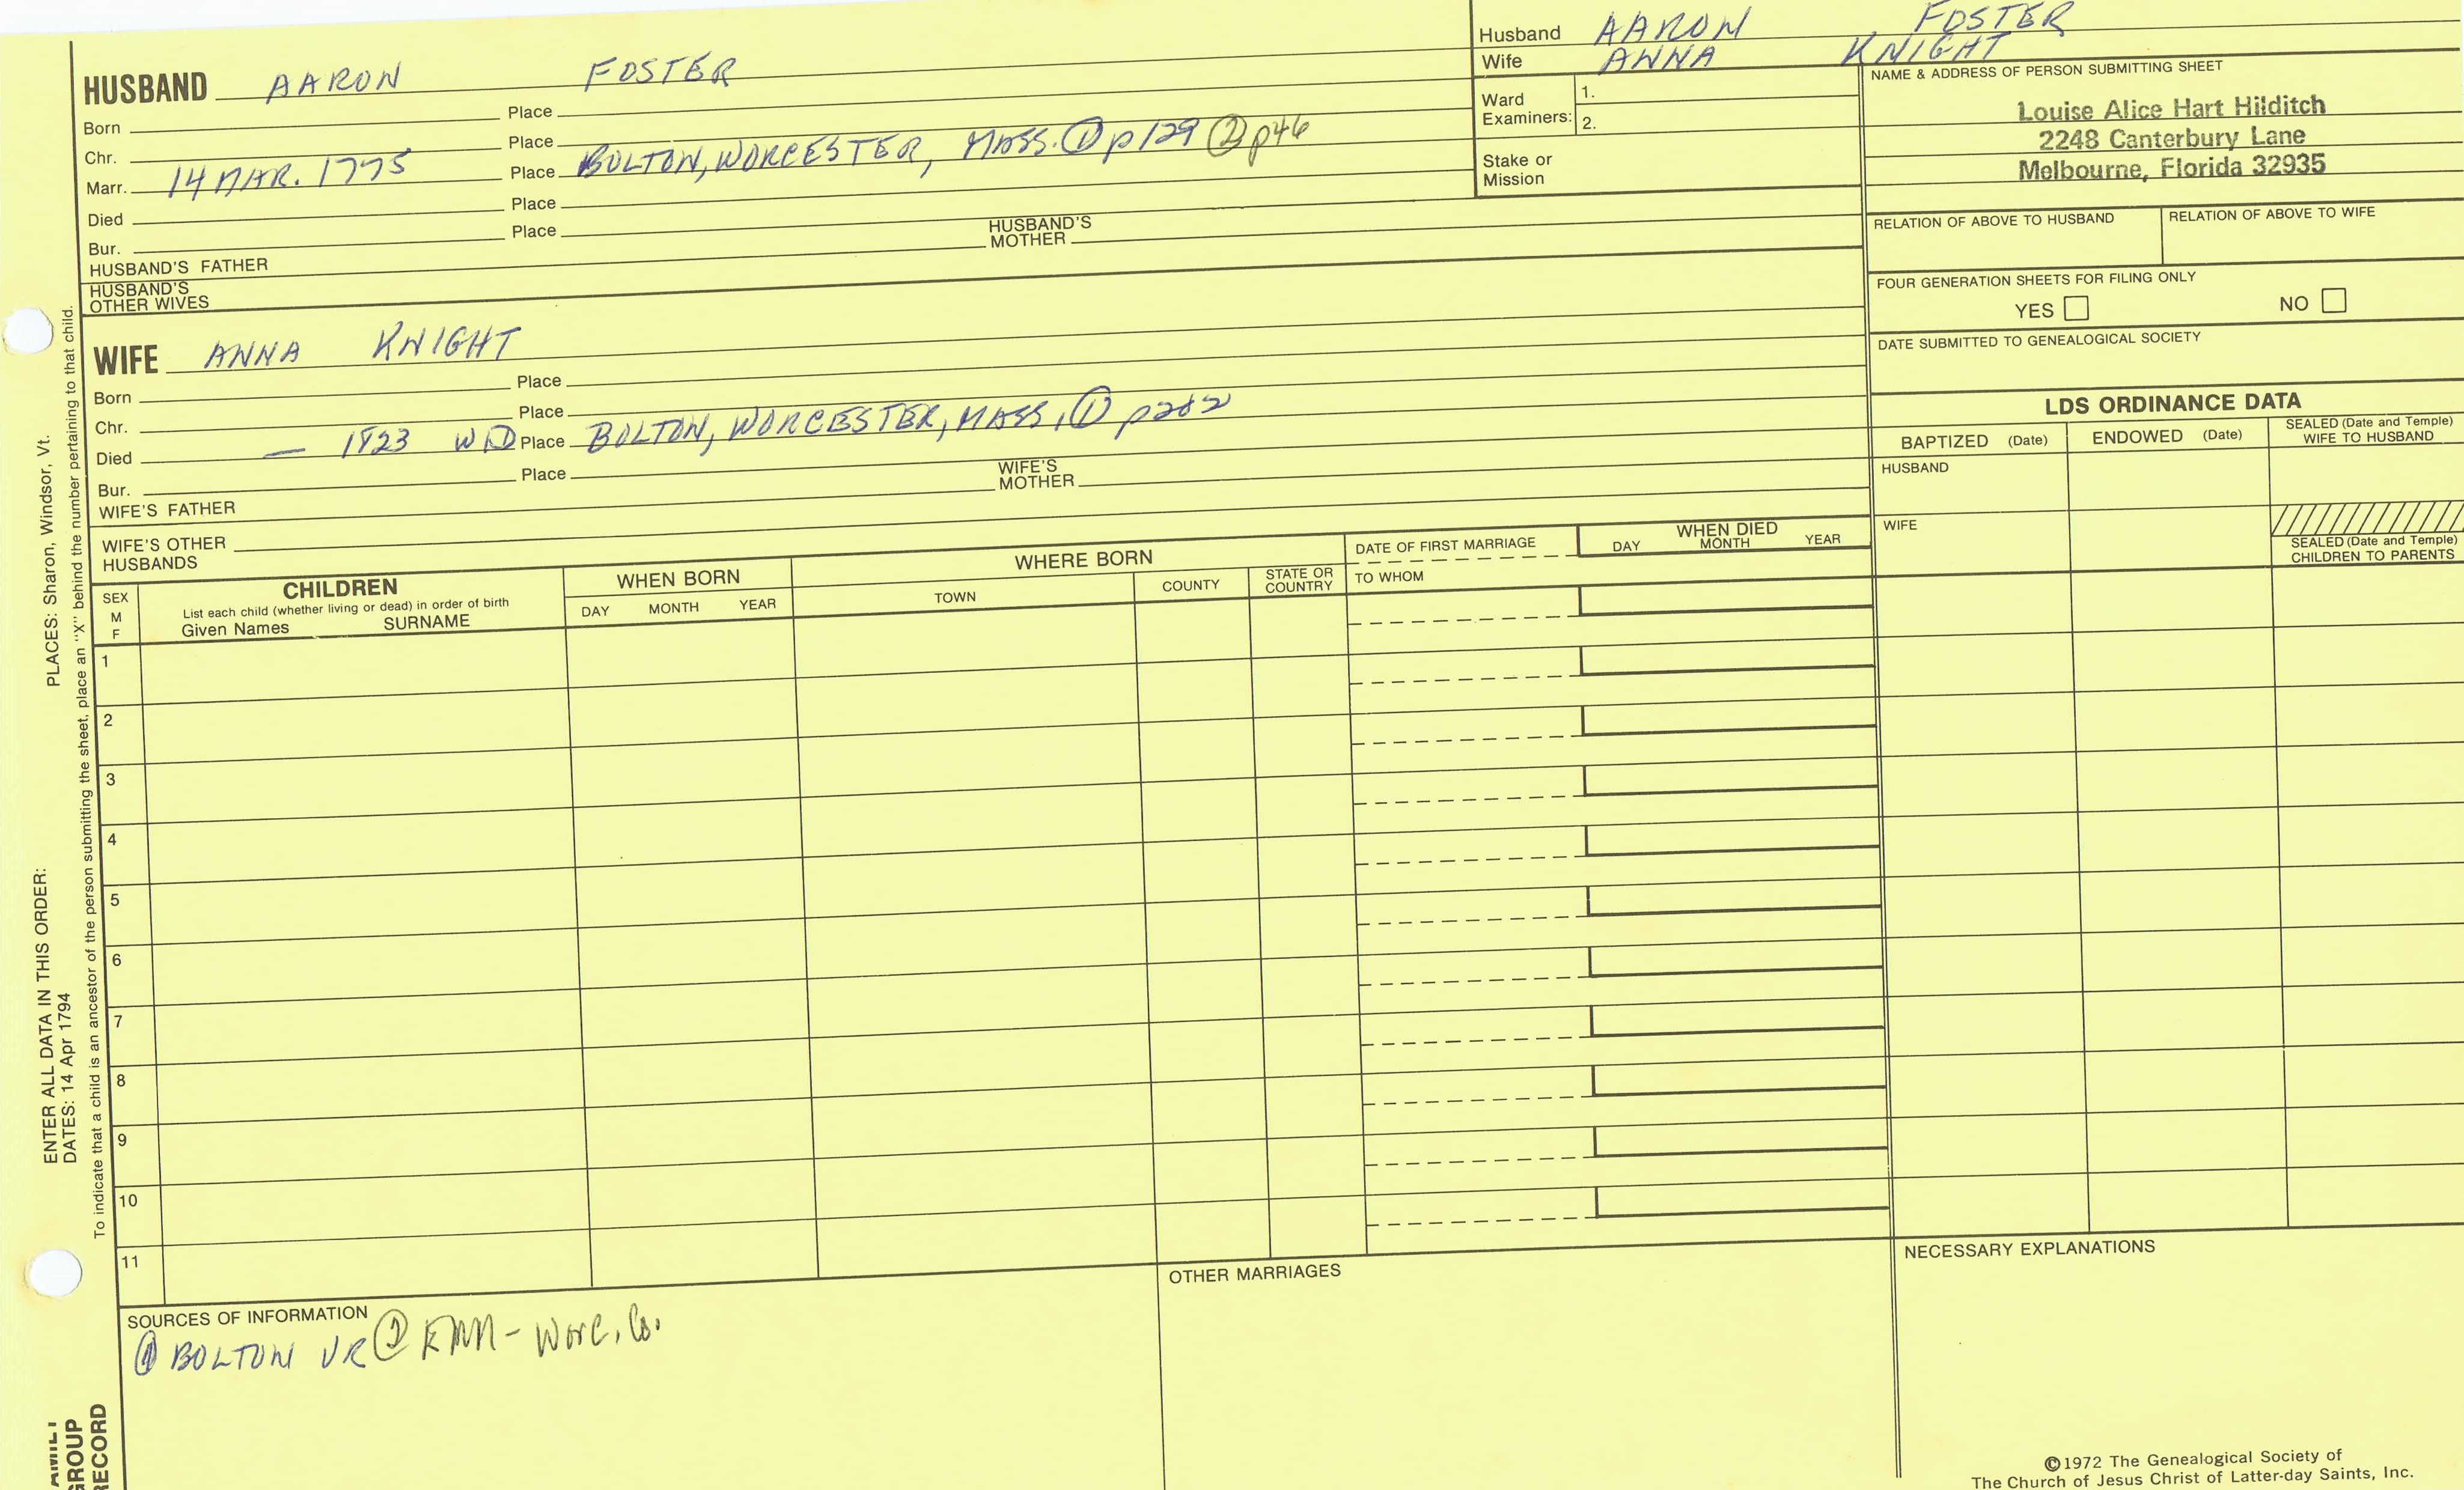 Husband AARON FOSTER
Wife ANNA KNIGHT
HUSBAND AARON FOSTER
Born Place
Chr. Place
Marr. 14 MAR. 1775 Place BOLTON, WORCESTER, MASS. ① p129 ② p46
Died Place
Bur. Place
HUSBAND'S FATHER HUSBAND'S MOTHER
HUSBAND'S OTHER WIVES
Ward Examiners: 1.
2.
Stake or Mission
NAME & ADDRESS OF PERSON SUBMITTING SHEET
Louise Alice Hart Hilditch
2248 Canterbury Lane
Melbourne, Florida 32935
RELATION OF ABOVE TO HUSBAND RELATION OF ABOVE TO WIFE
FOUR GENERATION SHEETS FOR FILING ONLY
YES NO
DATE SUBMITTED TO GENEALOGICAL SOCIETY
WIFE ANNA KNIGHT
Born Place
Chr. Place
Died — 1823 WID Place BOLTON, WORCESTER, MASS, ① p202
Bur. Place
WIFE'S FATHER WIFE'S MOTHER
WIFE'S OTHER HUSBANDS
LDS ORDINANCE DATA
BAPTIZED (Date) ENDOWED (Date) SEALED (Date and Temple) WIFE TO HUSBAND
HUSBAND
WIFE
SEALED (Date and Temple) CHILDREN TO PARENTS
SEX M F
CHILDREN
List each child (whether living or dead) in order of birth
Given Names SURNAME
WHEN BORN
DAY MONTH YEAR
WHERE BORN
TOWN COUNTY STATE OR COUNTRY
DATE OF FIRST MARRIAGE
TO WHOM
WHEN DIED
DAY MONTH YEAR
1
2
3
4
5
6
7
8
9
10
11
SOURCES OF INFORMATION
① BOLTON VR ② EMM - Worc. Co.
OTHER MARRIAGES
NECESSARY EXPLANATIONS
©1972 The Genealogical Society of
The Church of Jesus Christ of Latter-day Saints, Inc.
ENTER ALL DATA IN THIS ORDER:
DATES: 14 Apr 1794 PLACES: Sharon, Windsor, Vt.
To indicate that a child is an ancestor of the person submitting the sheet, place an "X" behind the number pertaining to that child.
GROUP
RECORD